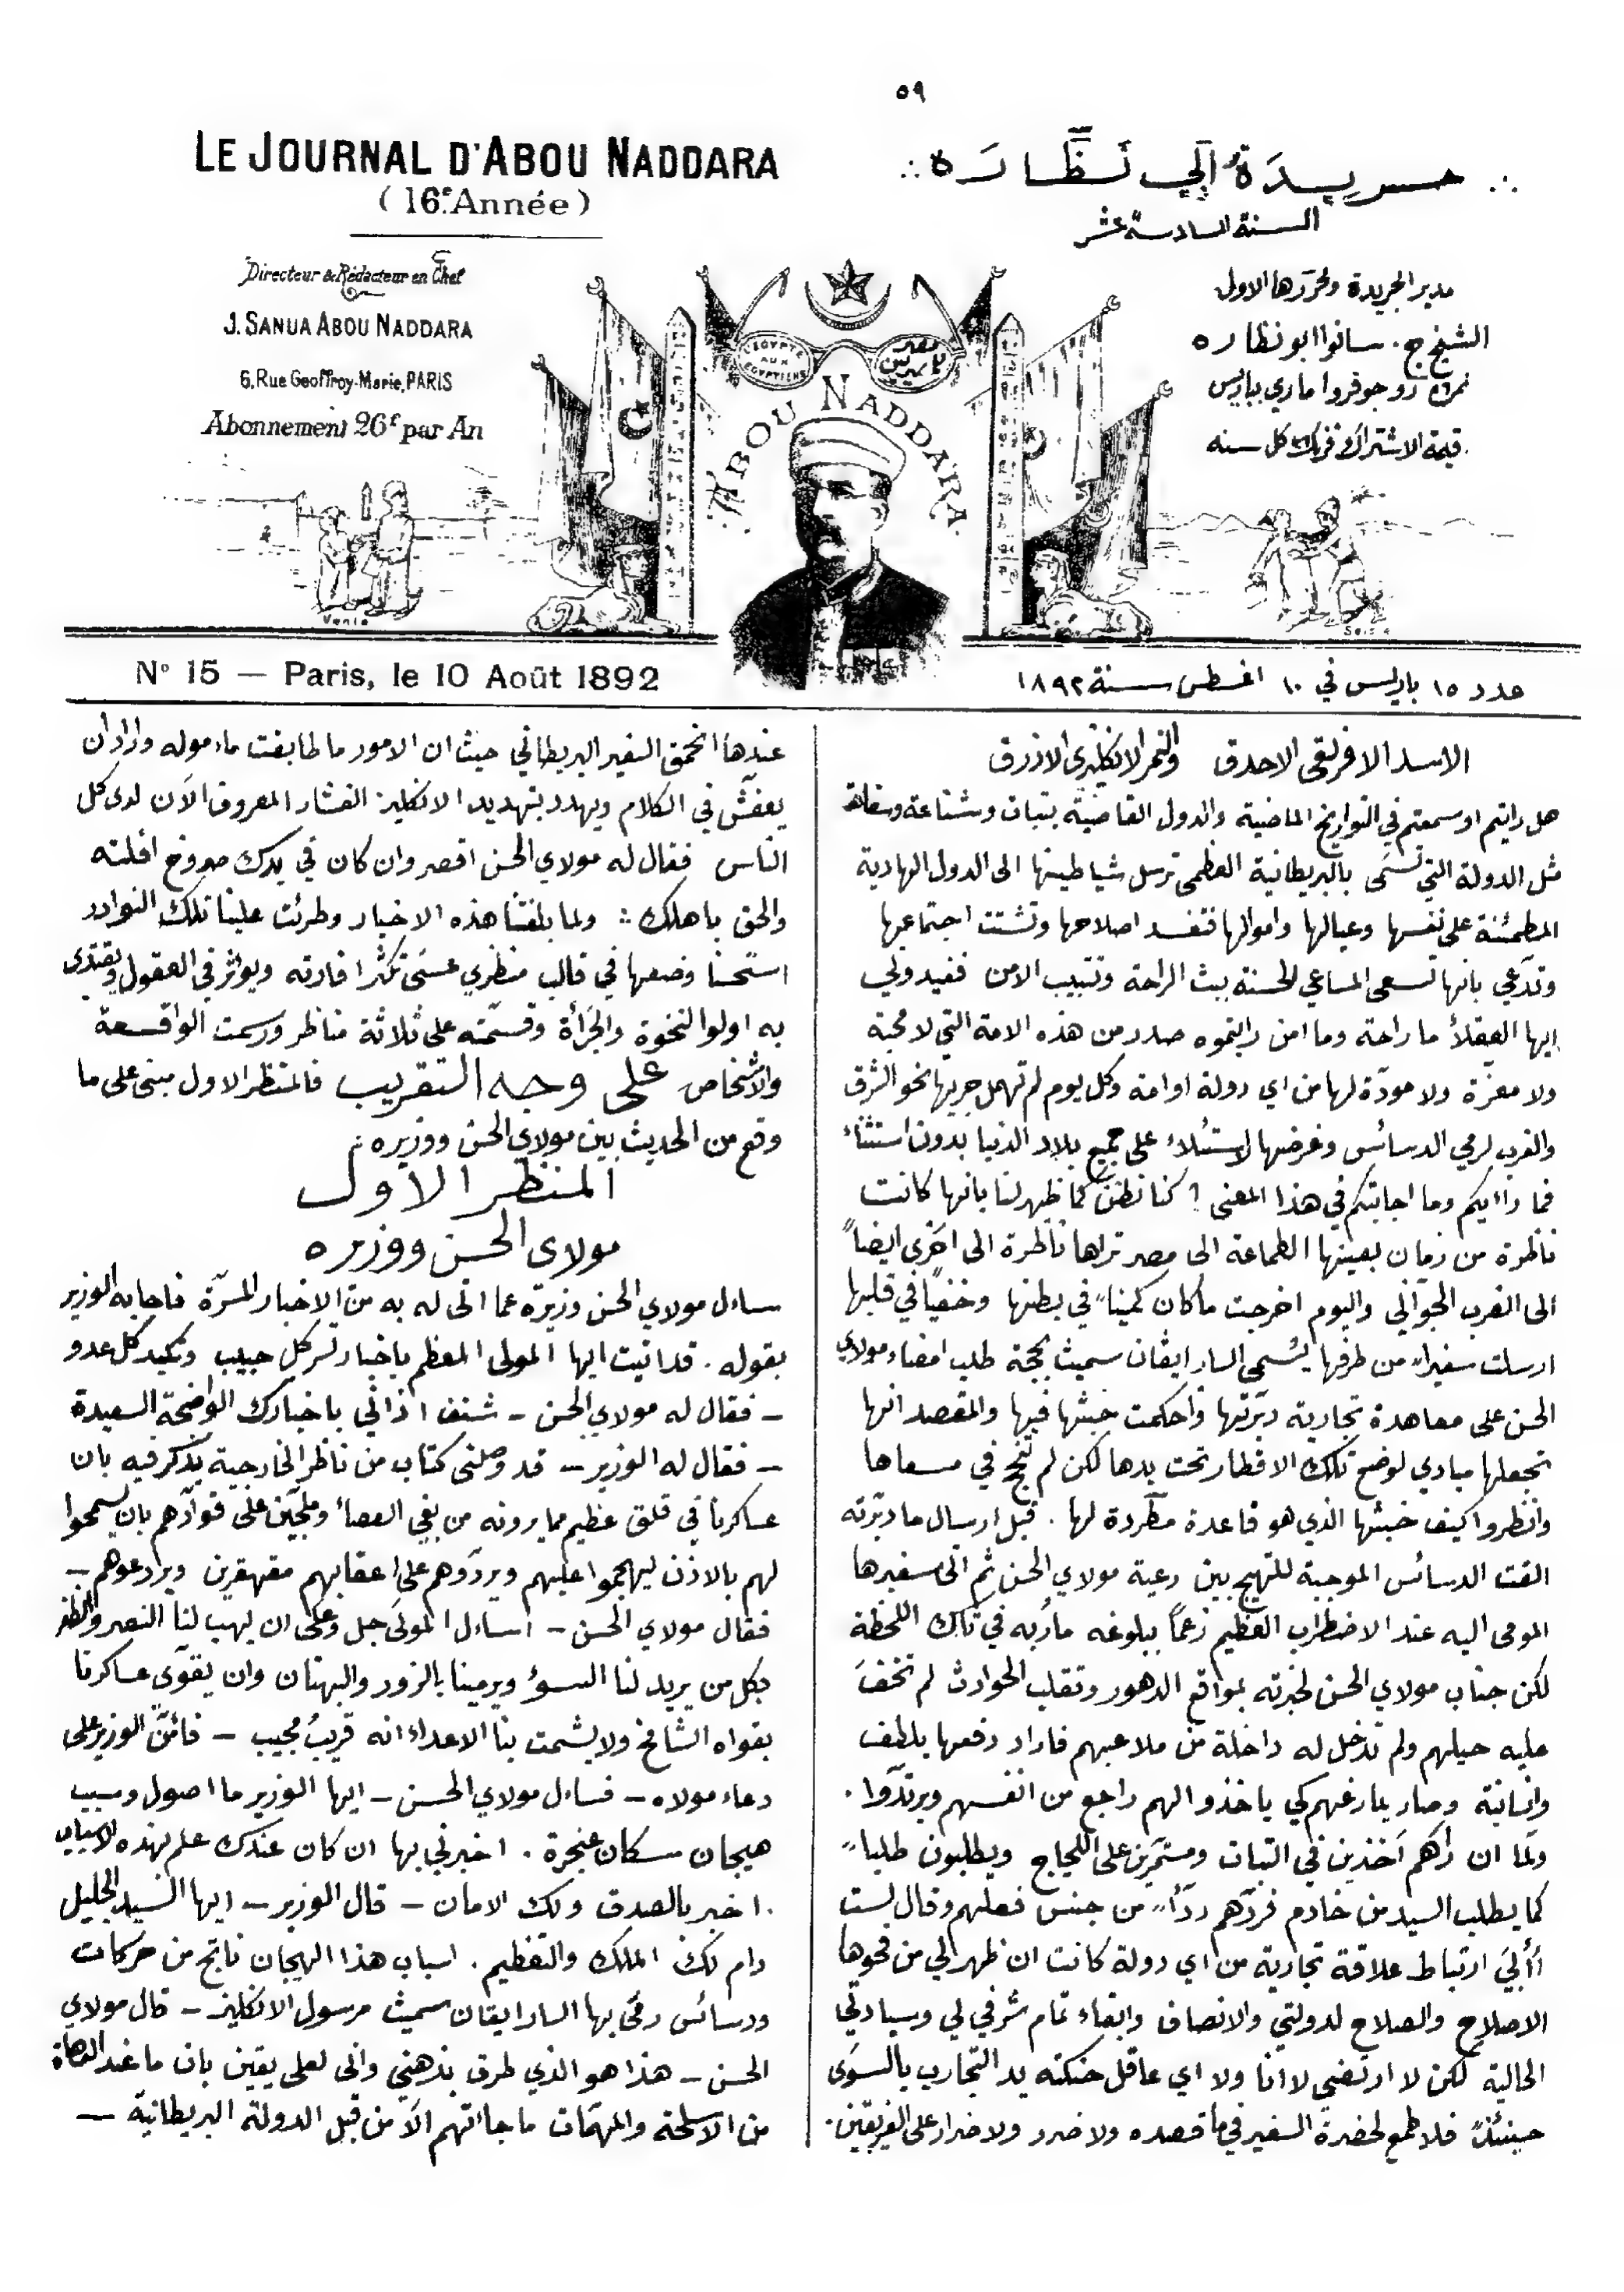 ٥٩
LE JOURNAL D'ABOU NADDARA
(16e Année)
Directeur & Rédacteur en Chef
J. SANUA ABOU NADDARA
6, Rue Geoffroy-Marie, PARIS
Abonnement 26f par An
جريدة ابي نظاره
السنة السادسة عشر
مدير الجريدة ومحررها الاول
الشيخ ج. سانوا ابو نظاره
نمرة ٦ رو جوفروا ماري بباريس
قيمة الاشتراك ٢٦ فرنك كل سنه
L'EGYPTE AUX EGYPTIENS
مصر للمصريين
ABOU NADDARA
N° 15 — Paris, le 10 Août 1892
عدد ١٥ باريس في ١٠ اغسطس سنة ١٨٩٢
الاسد الافريقي الاحدق والنمر الانكليزي الازرق
هل رايتم او سمعتم في التواريخ الماضية والدول القاصية بثبات وشناعة وسفاهة
مثل الدولة التي تسمى بالبريطانية العظمى ترسل شياطينها الى الدول الهادية
المطمئنة على نفسها وعيالها واموالها فتفسد اصلاحها وتشتت اجتماعها
وتدعي بانها تسعى المساعي الحسنة ببث الراحة وتسبيب الامن ففيدوني
ايها العقلاء ما راحة وما امن رايتموه صدر من هذه الامة التي لا محبة
ولا معزة ولا مودة لها من اي دولة او امة وكل يوم لم تهمل جريها نحو الشرق
والغرب لرمي الدسائس وغرضها لاستيلاء على جميع بلاد الدنيا بدون استثناء
فما راايكم وما اجابتكم في هذا المعنى ؟ كنا نظن كما ظهر لنا بانها كانت
ناظرة من زمان بعينها الطماعة الى مصر تراها ناظرة الى اخرى ايضاً
الى الغرب الجواني واليوم اخرجت ما كان كميناً في بطنها وخفياً في قلبها
ارسلت سفيراً من طرفها يسمى السار ايفان سميث بحجة طلب امضاء مولاي
الحسن على معاهدة تجارية دبرتها واحكمت خبثها فيها والمقصد انها
تجعلها مبادي لوضع تلك الاقطار تحت يدها لكن لم تنجح في مسعاها
وانظروا كيف خبثها الذي هو قاعدة مطردة لها . قبل ارسال ما دبرته
القت الدسائس الموجبة للتهيج بين رعية مولاي الحسن ثم اتى سفيرها
المومى اليه عند الاضطراب العظيم زعماً ببلوغه مأربه في تلك اللحظة
لكن جناب مولاي الحسن لخبرته بمواقع الدهور وتقلب الحوادث لم تخف
عليه حيلهم ولم تدخل له داخلة من ملاعبهم فاراد دفعها بلطف
وانسانية وصار يمارغهم كي ياخذوا لهم راجع من انفسهم ويرتدوا .
ولما ان رآهم آخذين في الثبات ومستمرين على اللجاج ويطلبون طلباً
كما يطلب السيد من خادم فردهم رداً من جنس فعلهم وقال لست
أأبى ارتباط علاقة تجارية من اي دولة كانت ان ظهر لي من فحوها
الاصلاح والصلاح لدولتي والانصاف وابقاء تمام شرفي لي وسيادتي
الحالية لكن لا ارتضي لا انا ولا اي عاقل حنكته يد التجارب بالسوى
حينئذ فلا طمع لحضرة السفير في ما قصده ولا ضرر ولا ضرار على الفريقين .
عندها انحمق السفير البريطاني حيث ان الامور ما طابقت ماءموله واراد ان
يعفش في الكلام ويهدد بتهديد الانكليز الفشار المعروف الآن لدى كل
الناس فقال له مولاي الحسن اقصر وان كان في يدك صدوخ افلته
والحق باهلك : ولما بلغتنا هذه الاخبار وطرئت علينا تلك النوادر
استحسنا وضعها في قالب منظري عسى تكثر افادته ويواثر في العقول ويقتدى
به اولوا النخوة والجرأة وقسمته على ثلاثة مناظر ورسمت الواقعة
والاشخاص على وجه التقريب فالمنظر الاول مبني على ما
وقع من الحديث بين مولاي الحسن ووزيره :
المنظر الاول
مولاي الحسن ووزيره
ساءل مولاي الحسن وزيره عما اتى له به من الاخبار المسرة فاجابه الوزير
بقوله . قد اتيت ايها المولى المعظم باخبار تسر كل حبيب وتكيد كل عدو
– فقال له مولاي الحسن – شنف اذاني باخبارك الواضحة السعيدة
– فقال له الوزير – قد وصلني كتاب من ناظر الخارجية يذكر فيه بان
عساكرنا في قلق عظيم مما يرونه من بغي العصاة وملحين على قوادهم بان يسمحوا
لهم بالاذن ليهجموا عليهم ويردوهم على اعقابهم مقهقرين ويردعوهم –
فقال مولاي الحسن – اساءل المولى جل وعلى ان يهب لنا النصر والظفر
بكل من يريد لنا السوء ويرمينا بالزور والبهتان وان يقوى عساكرنا
بقواه الشامخ ولا يشمت بنا الاعداء انه قريب مجيب – فائن الوزير على
دعاء مولاه – فساءل مولاي الحسن – ايها الوزير ما اصول وسبب
هيجان سكان عنجرة . اخبرني بها ان كان عندك علم بهذه الاسباب
اخبر بالصدق ولك الامان – قال الوزير – ايها السيد الجليل
دام لك الملك والتعظيم . اسباب هذا الهيجان ناتج من حركات
ودسائس رمى بها السار ايفان سميث مرسول الانكليز – قال مولاي
الحسن – هذا هو الذي طرق بذهني واني لعلى يقين بان ما عند العصاة
من الاسلحة والمهمات ما جائتهم الا من قبل الدولة البريطانية –